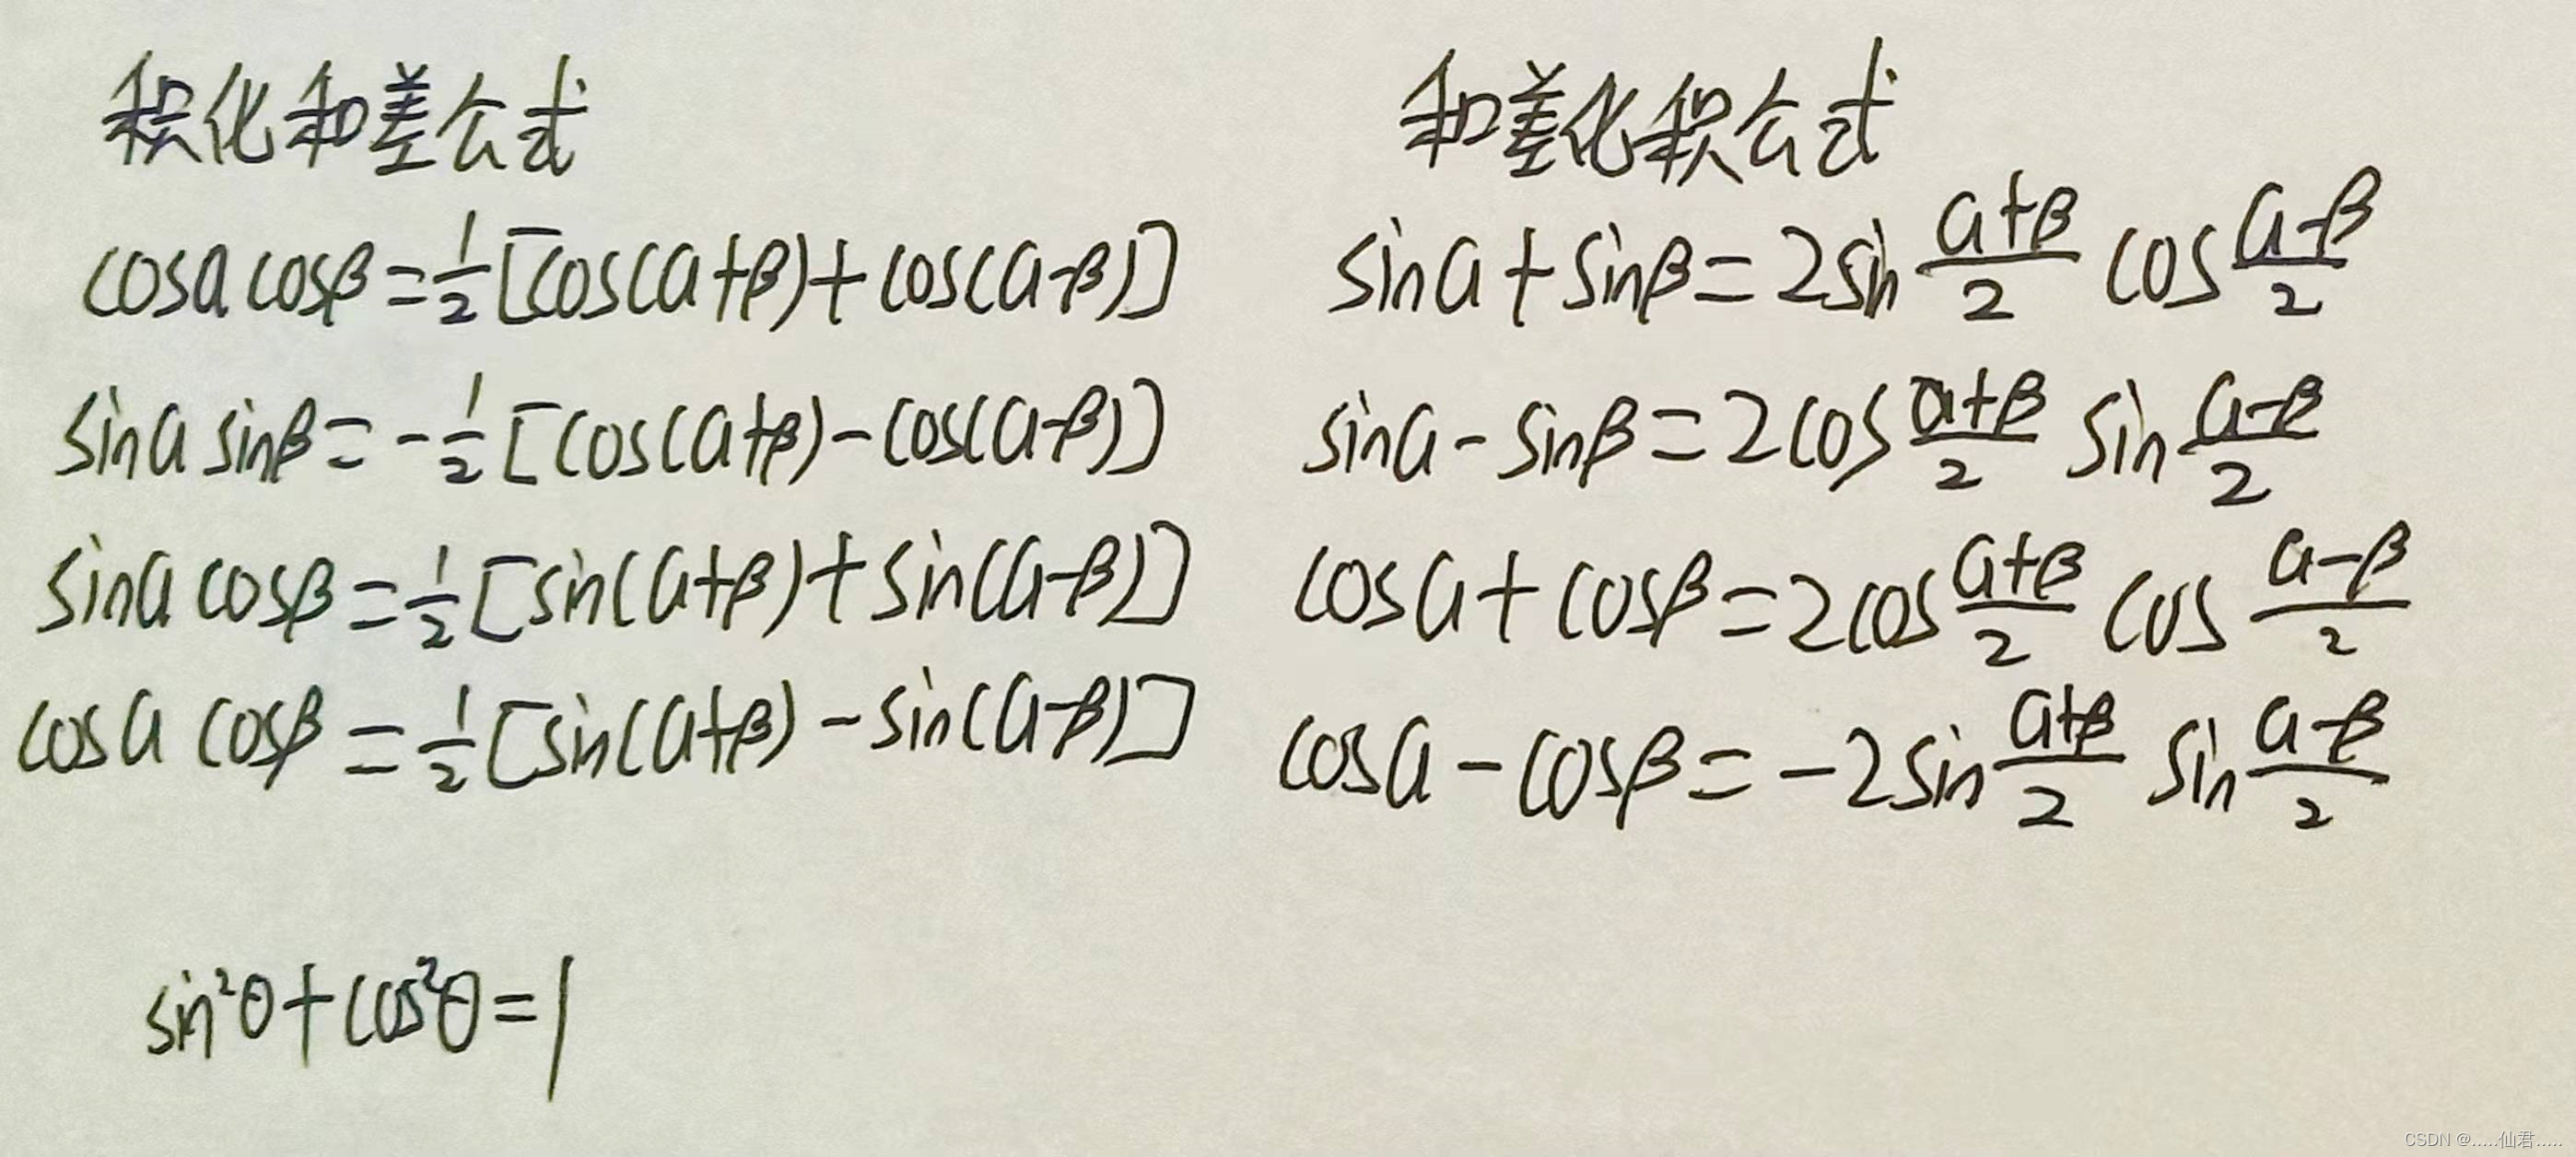 积化和差公式
cosα cosβ = 1/2 [cos(α+β) + cos(α-β)]
sinα sinβ = -1/2 [cos(α+β) - cos(α-β)]
sinα cosβ = 1/2 [sin(α+β) + sin(α-β)]
cosα cosβ = 1/2 [sin(α+β) - sin(α-β)]
sin²θ + cos²θ = 1
和差化积公式
sinα + sinβ = 2sin (α+β)/2 cos (α-β)/2
sinα - sinβ = 2cos (α+β)/2 sin (α-β)/2
cosα + cosβ = 2cos (α+β)/2 cos (α-β)/2
cosα - cosβ = -2sin (α+β)/2 sin (α-β)/2
CSDN @.....仙君.....